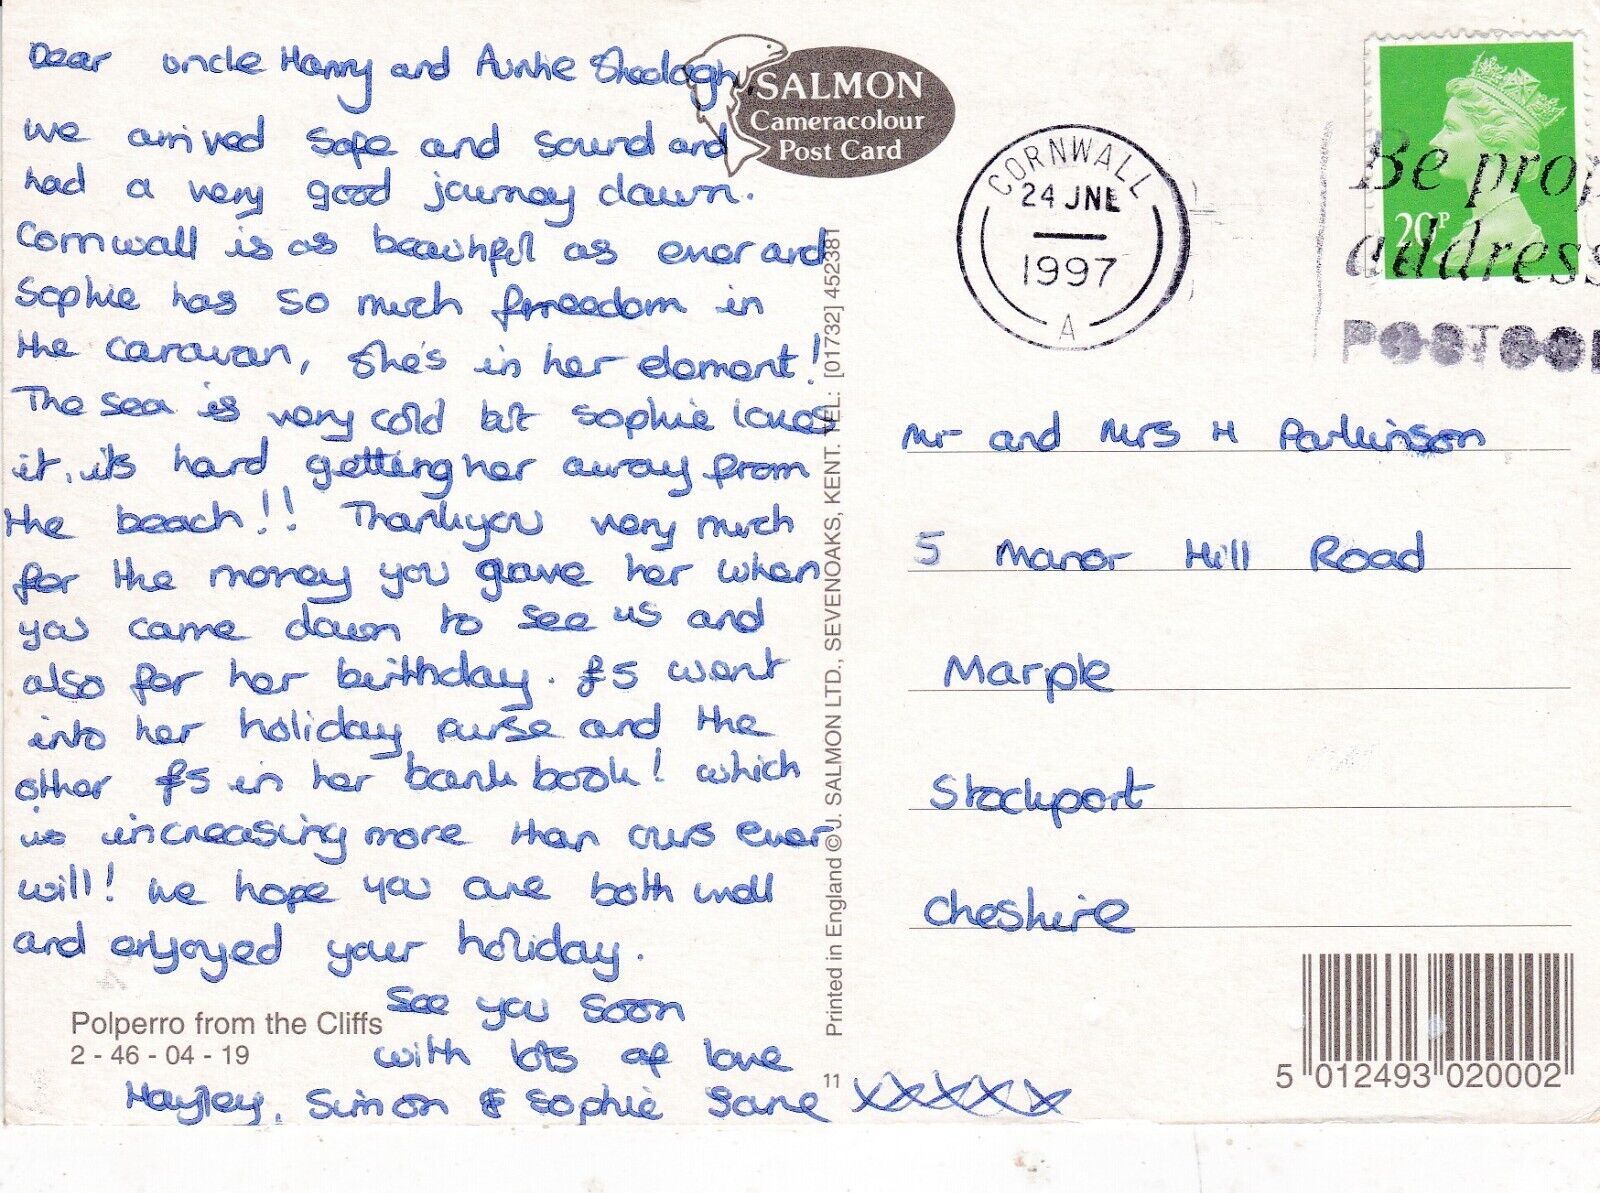 Dear uncle Harry and Auntie Sheelagh,
we arrived safe and sound and
had a very good journey down.
Cornwall is as beautiful as ever and
Sophie has so much freedom in
the caravan, she's in her element!
The sea is very cold but sophie loves
it, its hard getting her away from
the beach!! Thankyou very much
for the money you gave her when
you came down to see us and
also for her birthday. £5 went
into her holiday purse and the
other £5 in her bank book! which
is increasing more than ours ever
will! we hope you are both well
and enjoyed your holiday.
See you soon
with lots of love
Hayley, Simon & Sophie Jane xxxxx
Polperro from the Cliffs
2 - 46 - 04 - 19
SALMON
Cameracolour
Post Card
Printed in England © J. SALMON LTD., SEVENOAKS, KENT. TEL: [01732] 452381
11
CORNWALL
24 JNE
1997
A
20P
Be prop
address
POSTCO
Mr and Mrs H Parkinson
5 Manor Hill Road
Marple
Stockport
Cheshire
5 012493 020002